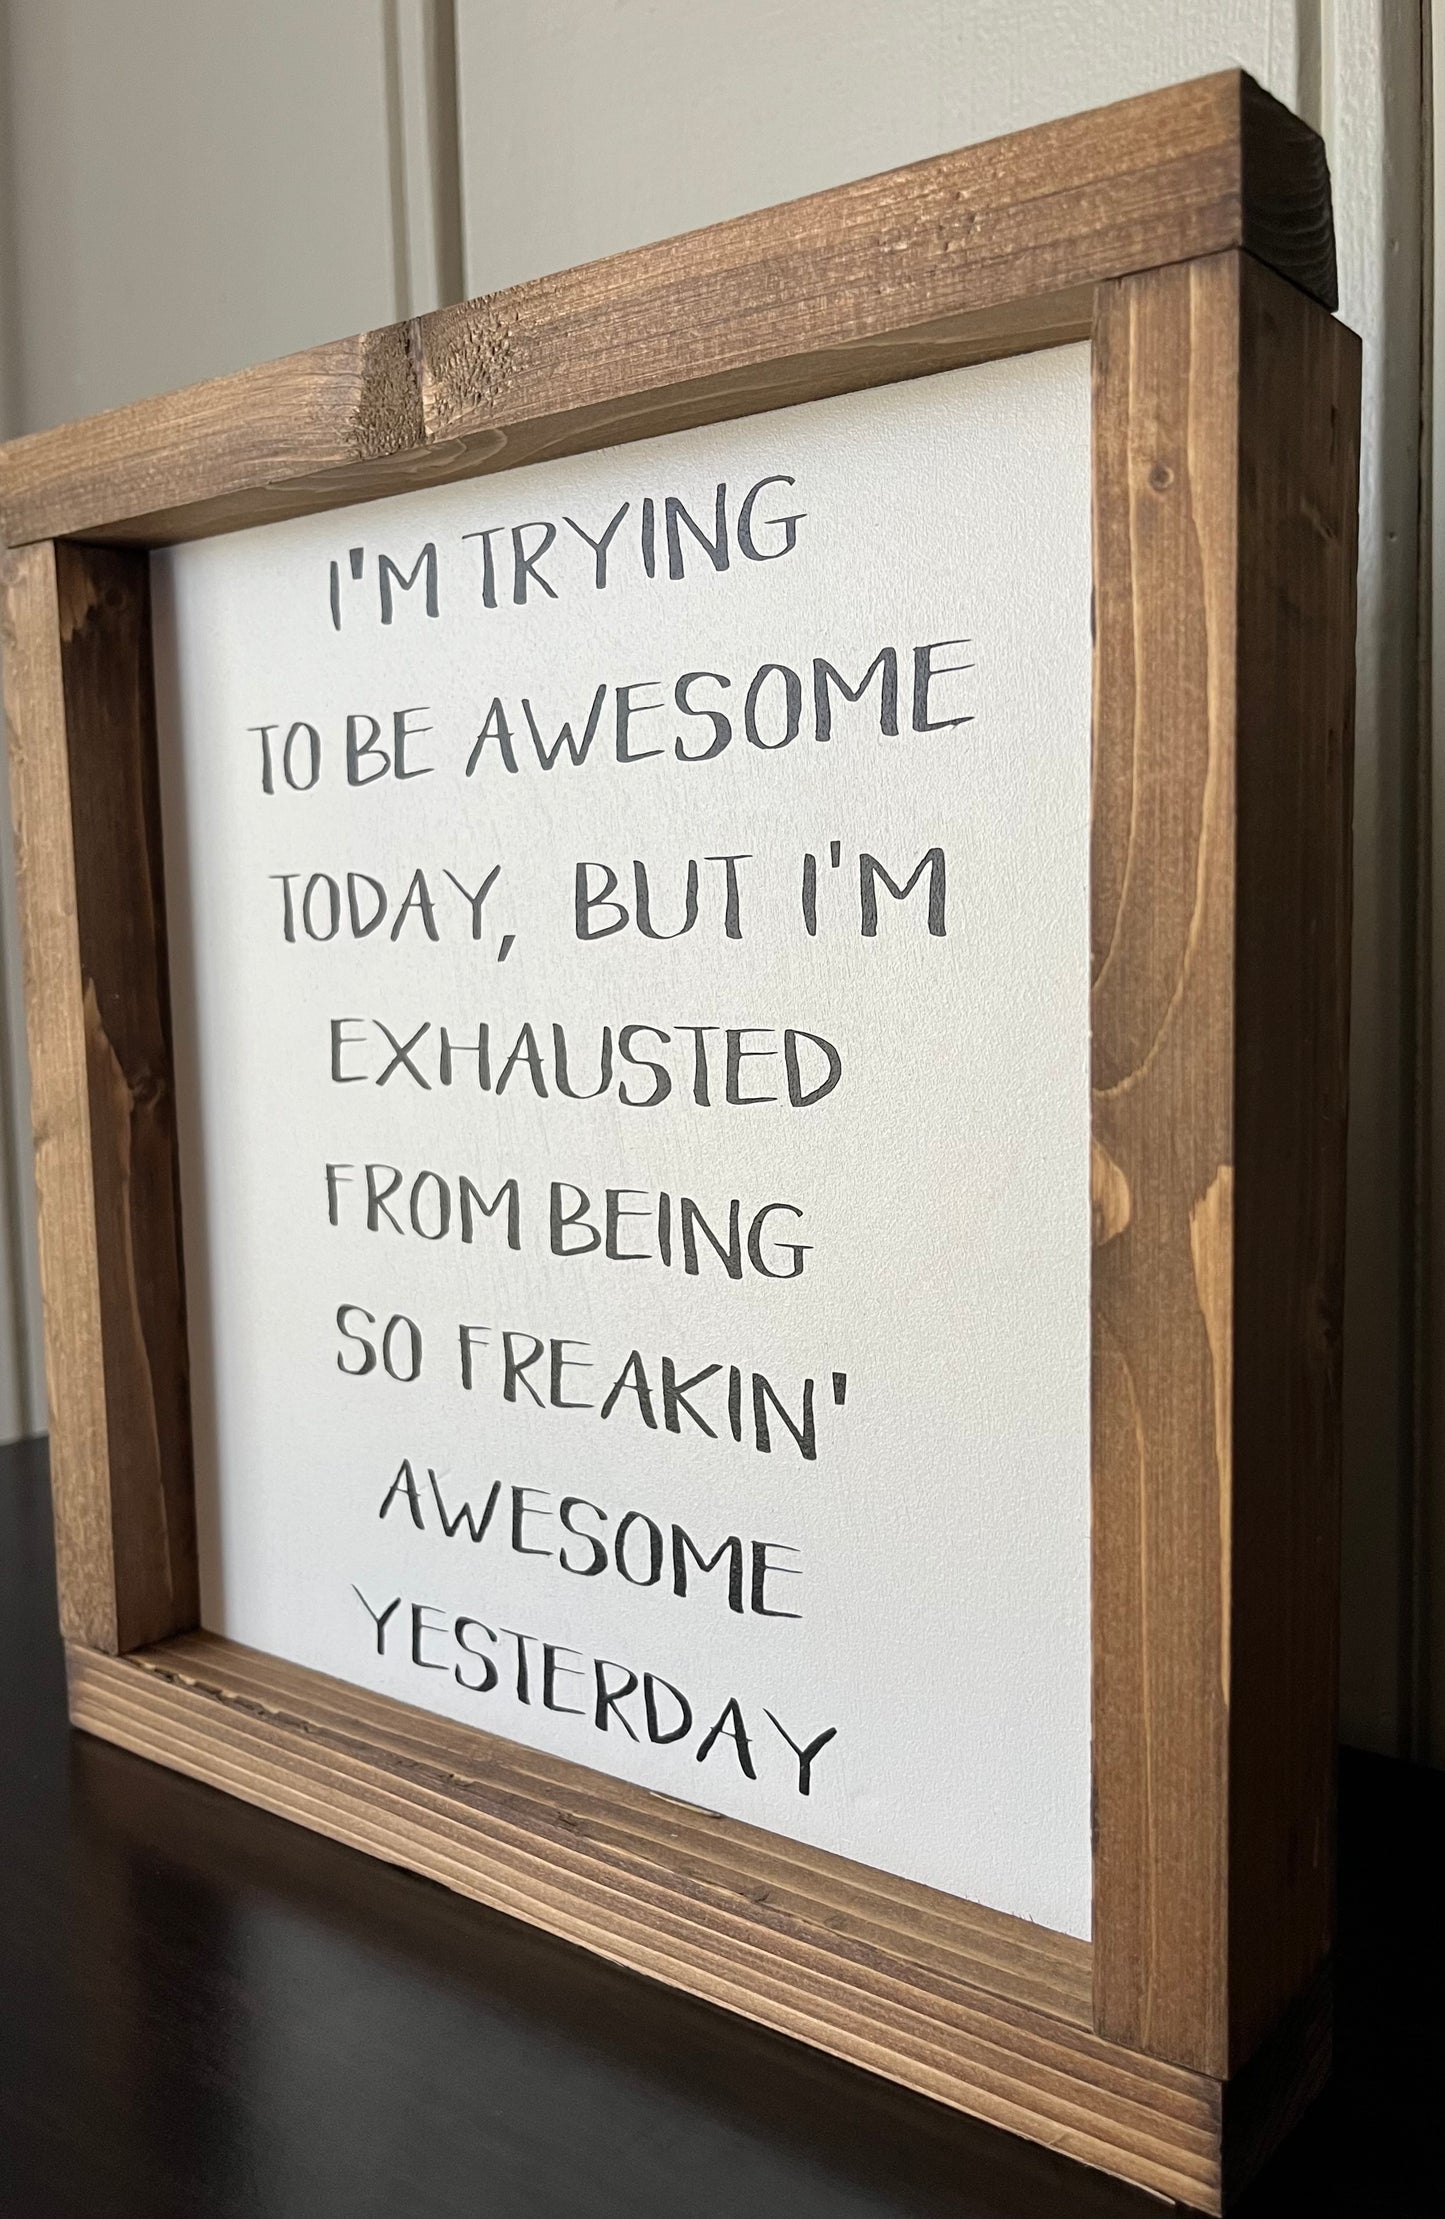 I'M TRYING
TO BE AWESOME
TODAY, BUT I'M
EXHAUSTED
FROM BEING
SO FREAKIN'
AWESOME
YESTERDAY